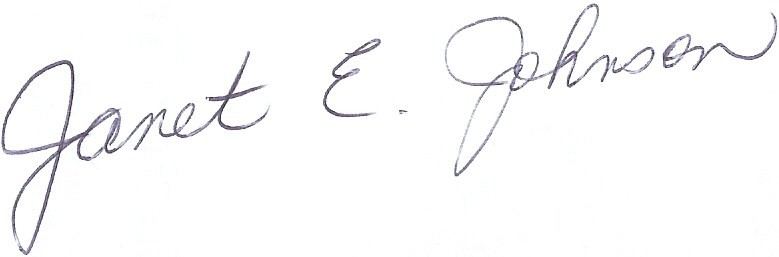 Janet E. Johnson